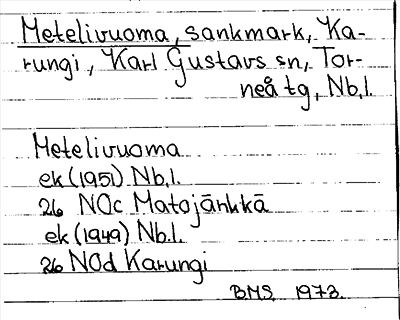 Metelivuoma, sankmark, Ka-
rungi, Karl Gustavs sn, Tor-
neå tg, Nb.l.
Metelivuoma
ek (1951) Nb.l.
26 NOc Matojänkkä
ek (1949) Nb.l.
26 NOd Karungi
BMS 1973.